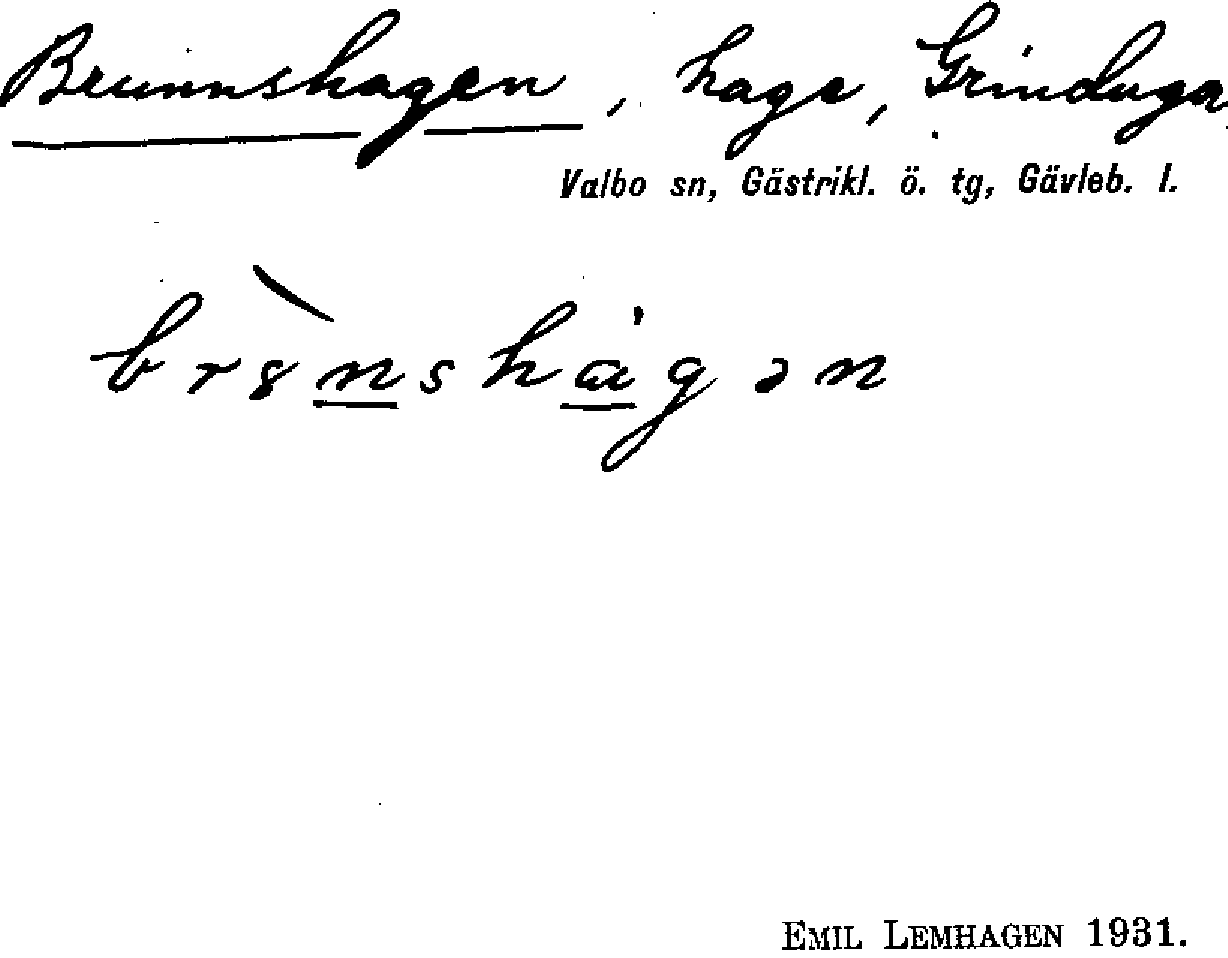 Brunnshagen, hage, Grinduga
Valbo sn, Gästrikl. ö. tg, Gävleb. l.
br8̀n̲shɑ̲́gən
EMIL LEMHAGEN 1931.